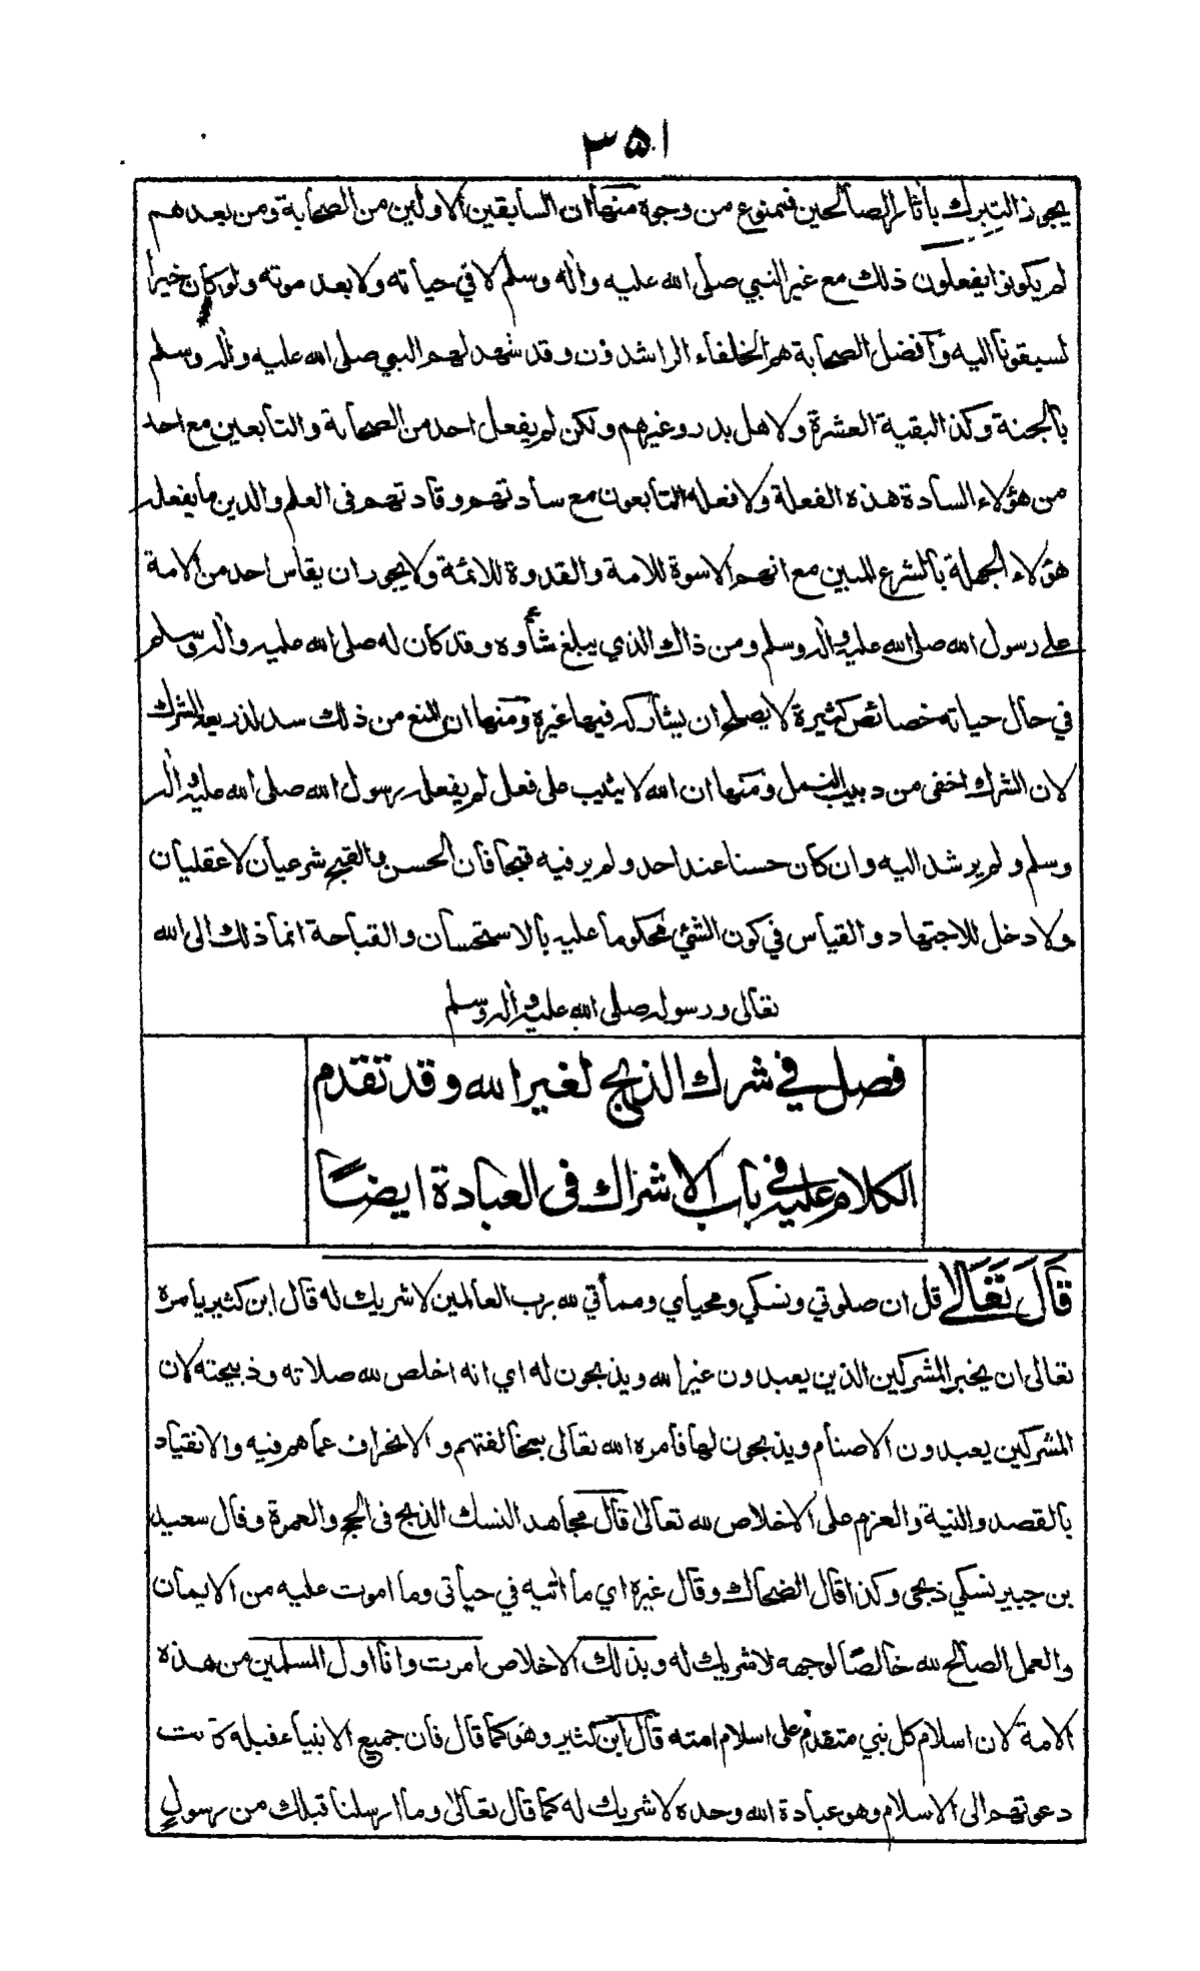 ٣٥١
يجوز التبرك بآثار الصالحين فممنوع من وجوه منها ان السابقين الاولين من الصحابة ومن بعدهم
لم يكونوا يفعلون ذلك مع غير النبي صلى الله عليه واله وسلم لا في حياته ولا بعد موته ولو كان خيرا
لسبقونا اليه وافضل الصحابة هم الخلفاء الراشدون وقد شهد لهم النبي صلى الله عليه واله وسلم
بالجنة وكذا لبقية العشرة ولاهل بدر وغيرهم ولكن لم يفعل احد من الصحابة والتابعين مع احد
من هؤلاء السادة هذه الفعلة ولا فعله التابعون مع سادتهم وقادتهم فى العلم والدين ما يفعله
هؤلاء الجهلة بالشرع المبين مع انهم الاسوة للامة والقدوة للائمة ولا يجوز ان يقاس احد من الامة
على رسول الله صلى الله عليه واله وسلم ومن ذاك الذي يبلغ شأوه وقد كان له صلى الله عليه واله وسلم
في حال حياته خصائص كثيرة لا يصلح ان يشاركه فيها غيره ومنها ان المنع من ذلك سد لذريعة الشرك
لان الشرك اخفى من دبيب النمل ومنها ان الله لا يثيب على فعل لم يفعله رسول الله صلى الله عليه واله
وسلم ولم يرشد اليه وان كان حسنا عند احد ولم ير فيه قبحا فان الحسن والقبح شرعيان لا عقليان
ولا دخل للاجتهاد والقياس في كون الشئ محكوما عليه بالاستحسان والقباحة انما ذلك الى الله
تعالى ورسوله صلى الله عليه واله وسلم
فصل في شرك الذبح لغير الله وقد تقدم
الكلام عليه في باب الاشراك فى العبادة ايضاً
قَالَ تَعَالى قل ان صلوتي ونسكي ومحياي ومماتي لله رب العالمين لا شريك له قال ابن كثير يأمره
تعالى ان يخبر المشركين الذين يعبدون غير الله ويذبحون له اي انه اخلص لله صلاته وذبيحته لان
المشركين يعبدون الاصنام ويذبحون لها فامره الله تعالى بمخالفتهم والانحراف عما هم فيه والانقياد
بالقصد والنية والعزم على الاخلاص لله تعالى قال مجاهد النسك الذبح فى الحج والعمرة وقال سعيد
بن جبير نسكي ذبحى وكذا قال الضحاك وقال غيره اي ما اتيه في حياتى وما اموت عليه من الايمان
والعمل الصالح لله خالصًا لوجهه لا شريك له وبذلك الاخلاص امرت وانا اول المسلمين من هذه
الامة لان اسلام كل نبي متقدم على اسلام امته قال ابن كثير وهو كما قال فان جميع الانبياء قبله كانت
دعوتهم الى الاسلام وهو عبادة الله وحده لا شريك له كما قال تعالى وما ارسلنا قبلك من رسولٍ